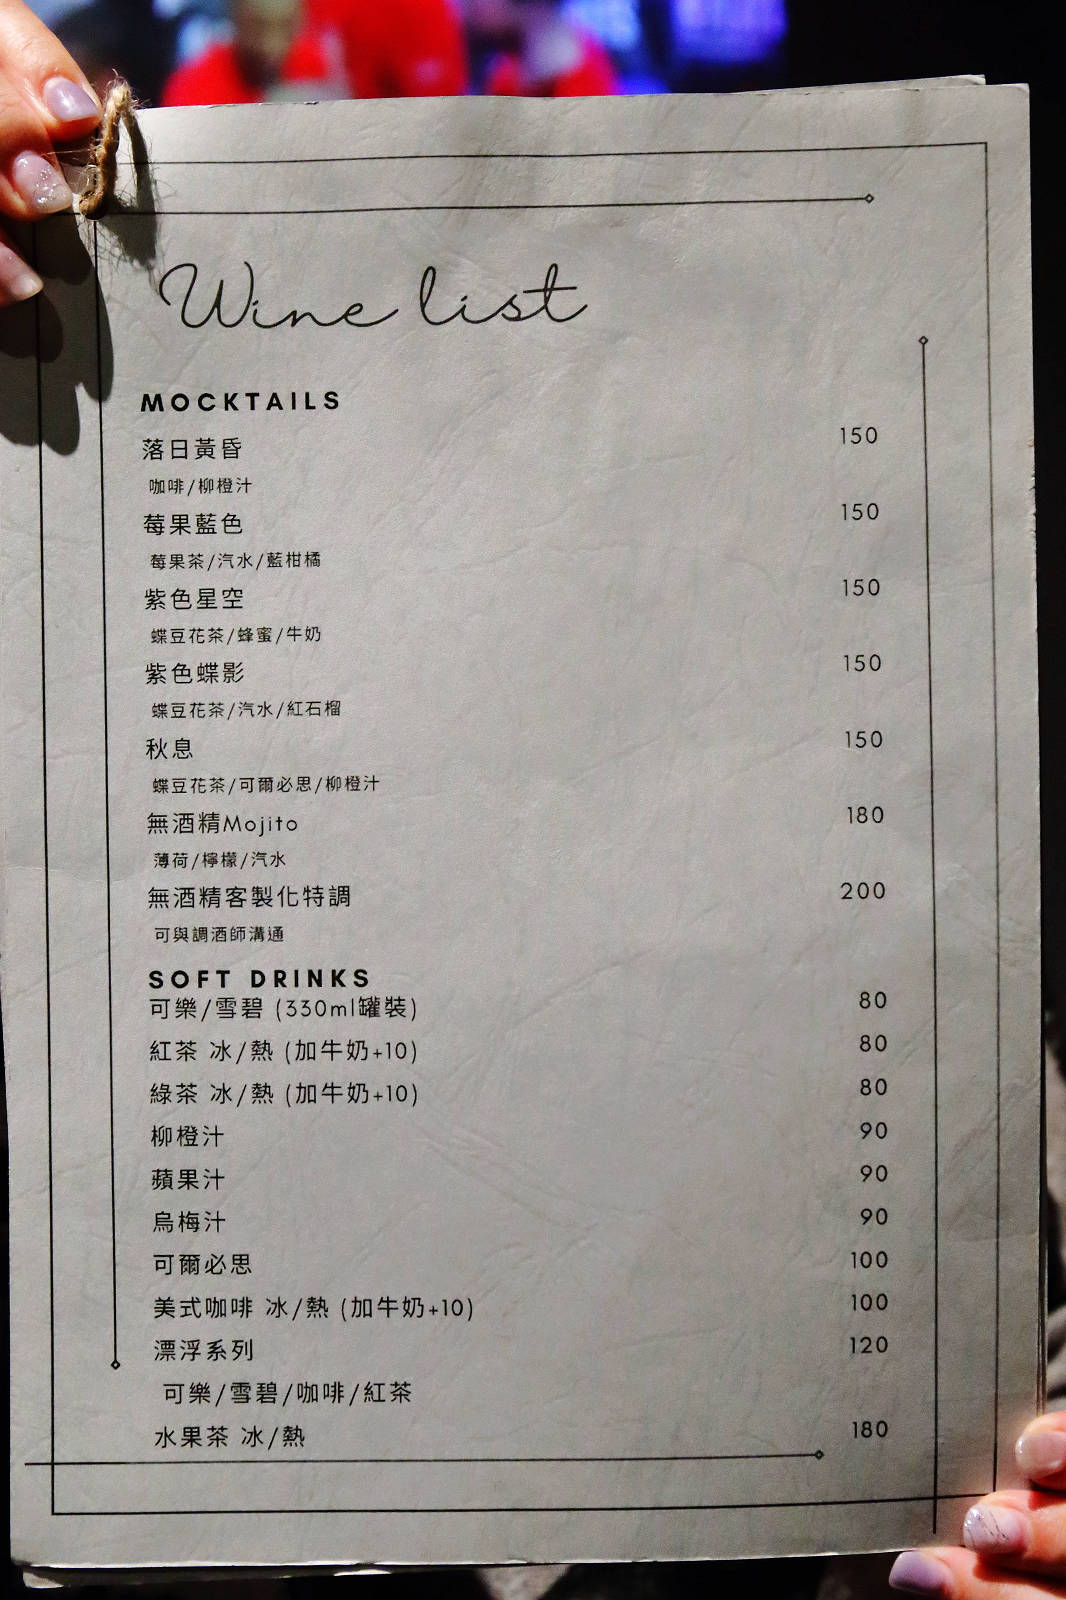 Wine list
MOCKTAILS
落日黃昏 150
咖啡/柳橙汁
莓果藍色 150
莓果茶/汽水/藍柑橘
紫色星空 150
蝶豆花茶/蜂蜜/牛奶
紫色蝶影 150
蝶豆花茶/汽水/紅石榴
秋息 150
蝶豆花茶/可爾必思/柳橙汁
無酒精Mojito 180
薄荷/檸檬/汽水
無酒精客製化特調 200
可與調酒師溝通
SOFT DRINKS
可樂/雪碧 (330ml罐裝) 80
紅茶 冰/熱 (加牛奶+10) 80
綠茶 冰/熱 (加牛奶+10) 80
柳橙汁 90
蘋果汁 90
烏梅汁 90
可爾必思 100
美式咖啡 冰/熱 (加牛奶+10) 100
漂浮系列 120
可樂/雪碧/咖啡/紅茶
水果茶 冰/熱 180